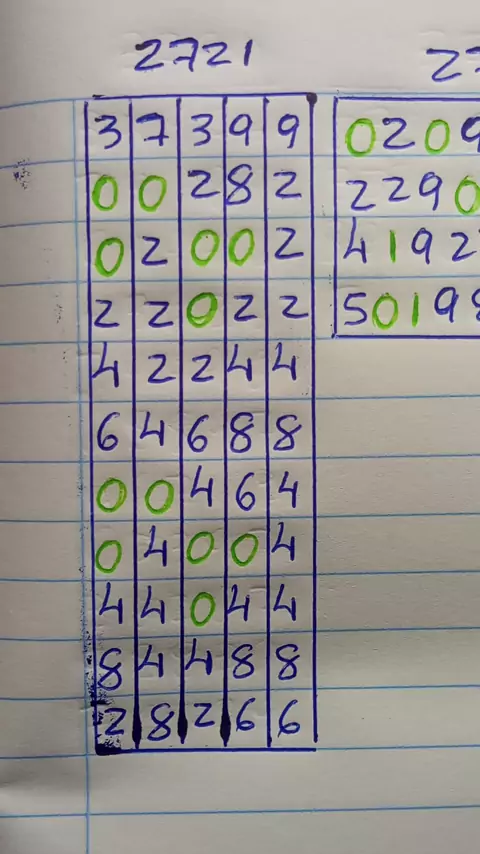 2721
3 7 3 9 9
0 0 2 8 2
0 2 0 0 2
2 2 0 2 2
4 2 2 4 4
6 4 6 8 8
0 0 4 6 4
0 4 0 0 4
4 4 0 4 4
8 4 4 8 8
2 8 2 6 6
27
0209
2290
4192
5019